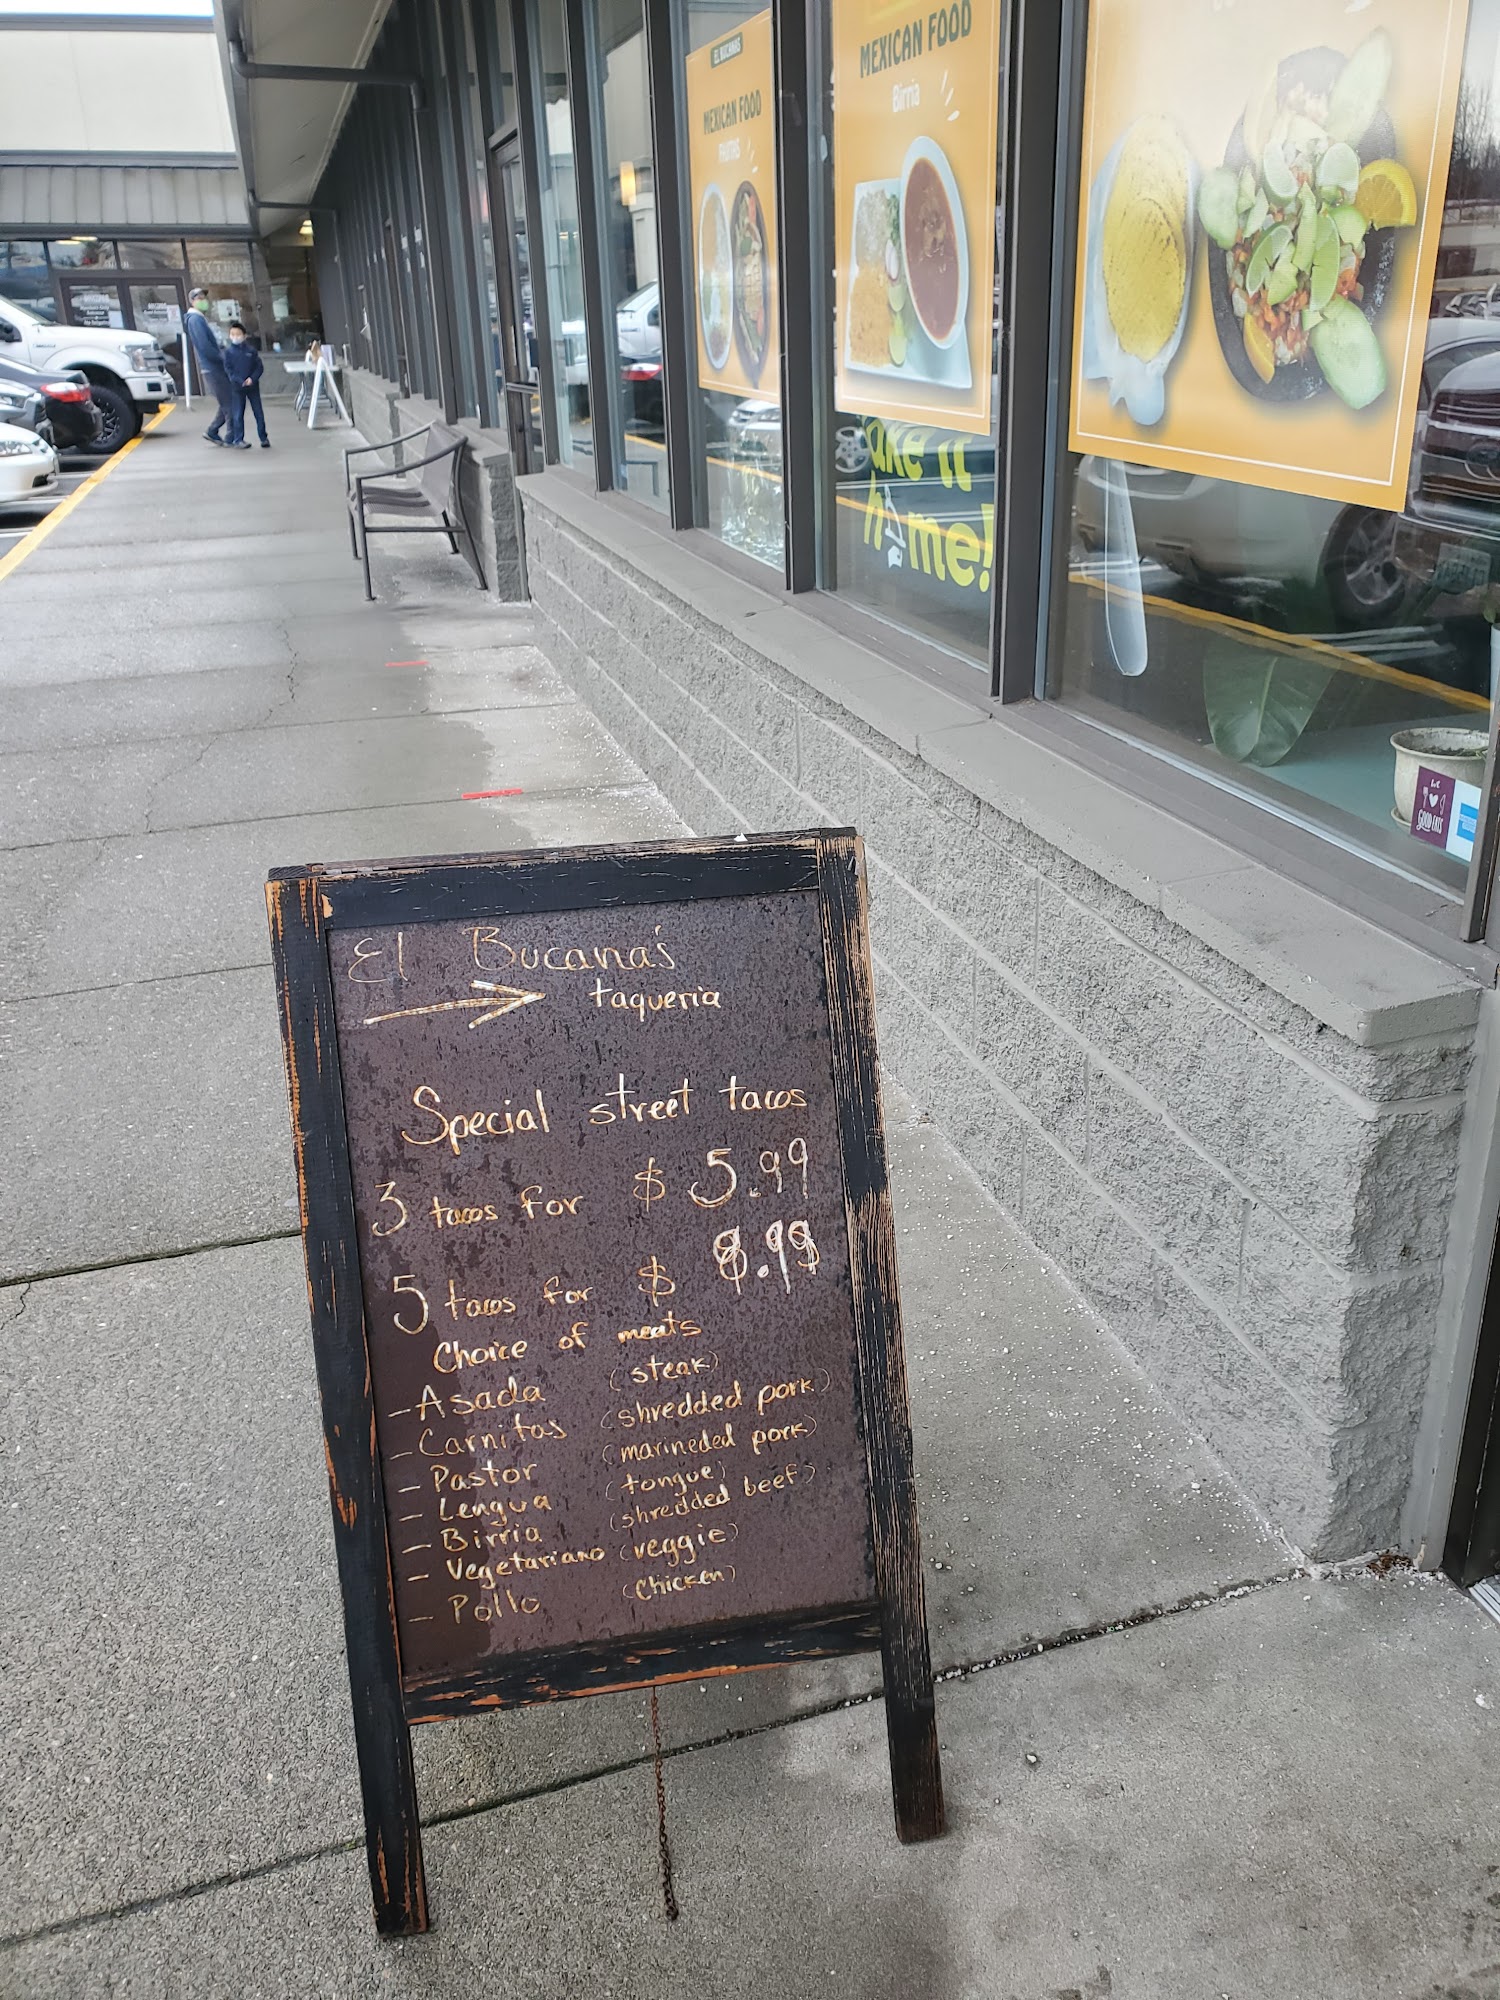 EL BUCANAS
MEXICAN FOOD
FAJITAS
MEXICAN FOOD
Birria
ake it
home!
we
GOOD EATS
El Bucana's
taqueria
Special street tacos
3 tacos for $ 5.99
5 tacos for $ 8.99
Choice of meats
- Asada (steak)
- Carnitas (shredded pork)
- Pastor (marineded pork)
- Lengua (tongue)
- Birria (shredded beef)
- Vegetariano (veggie)
- Pollo (chicken)